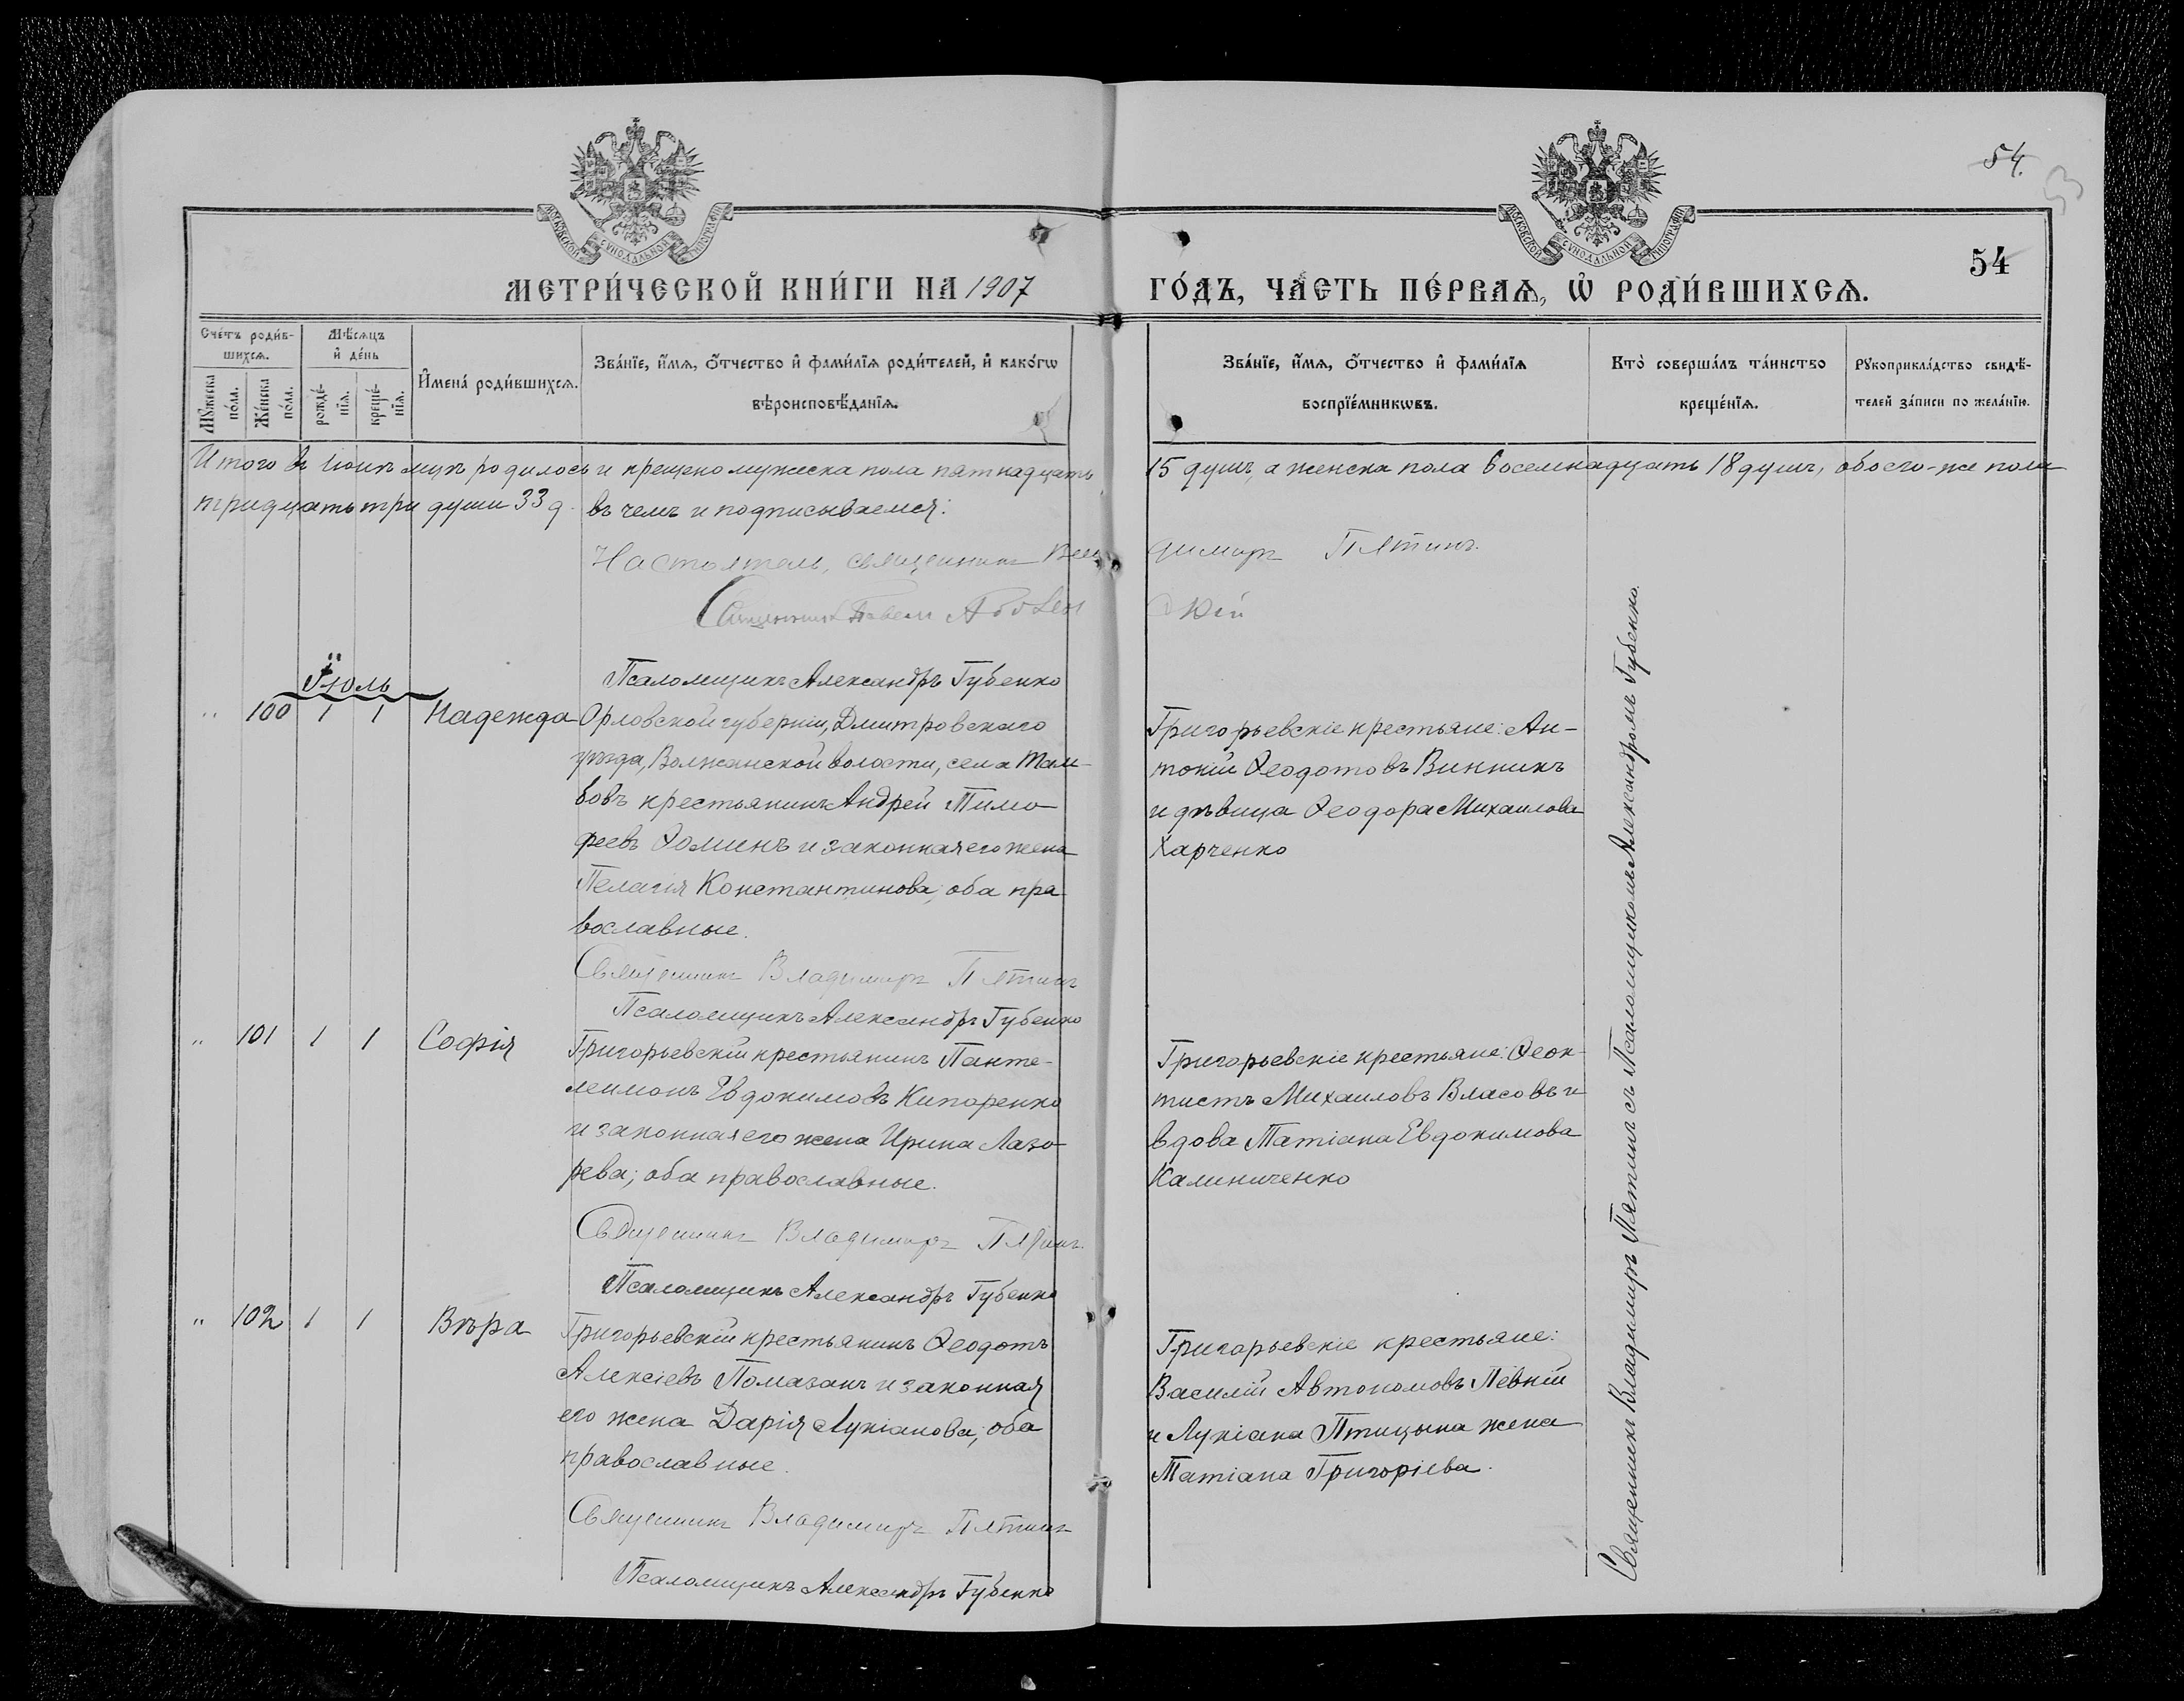 МОСКОВСКОЙ СѴНОДАЛЬНОЙ ТИПОГРАФІИ
МОСКОВСКОЙ СѴНОДАЛЬНОЙ ТИПОГРАФІИ
54.
53
54
МЕТРИ́ЧЕСКОЙ КНИ́ГИ НА 1907 ГО́ДЪ, ЧА́СТЬ ПЕ́РВАѦ, Ѡ҆ РОДИ́ВШИХСѦ.
Сче́тъ роди́вшихсѧ.
Мꙋ́жеска по́ла.
Же́нска по́ла.
Мѣ́сѧцъ и҆ де́нь
рожде́нїѧ.
креще́нїѧ.
И҆мена̀ роди́вшихсѧ.
Зва́нїе, и҆́мѧ, ѻ҆́тчество и҆ фами́лїѧ роди́телей, и҆ како́гѡ
вѣроисповѣ́данїѧ.
Зва́нїе, и҆́мѧ, ѻ҆́тчество и҆ фами́лїѧ
воспрїе́мникѡвъ.
Кто̀ соверша́лъ та́инство
креще́нїѧ.
Рꙋкоприкла́дство свидѣ́-
телей за́писи по жела́нїю.
Итого въ Іюнѣ мцѣ родилось и крещено мужеска пола пятнадцать 15 душъ, а женска пола восемнадцать 18 душъ, обоего-же пола
тридцать три души 33 д. въ чемъ и подписываемся:
Настоятель, священникъ Владимиръ Пятинъ.
Священникъ Павелъ
Псаломщикъ Александръ Губенко
Іюль
" 100 1 1 Надежда
Орловской губерніи, Дмитровскаго
уѣзда, Волжанской волости, села Там-
бовъ крестьянинъ Андрей Тимо-
феевъ Ѳоминъ и законная его жена
Пелагія Константинова; оба пра-
вославные.
Священникъ Владимиръ Пятинъ
Псаломщикъ Александръ Губенко
Григорьевскіе крестьяне: Ан-
тоній Ѳеодотовъ Винникъ
и дѣвица Ѳеодора Михаилова
Харченко
" 101 1 1 Софія
Григорьевскій крестьянинъ Панте-
леимонъ Евдокимовъ Кипоренко
и законная его жена Ирина Лазо-
рева; оба православные.
Священникъ Владимиръ Пятинъ.
Псаломщикъ Александръ Губенко
Григорьевскіе крестьяне: Ѳеок-
тистъ Михаиловъ Власовъ и
вдова Татіана Евдокимова
Калиниченко
" 102 1 1 Вѣра
Григорьевскій крестьянинъ Ѳеодотъ
Алексіевъ Помазанъ и законная
его жена Дарія Лукіанова; оба
православные.
Священникъ Владимиръ Пятинъ
Псаломщикъ Александръ Губенко
Григорьевскіе крестьяне:
Василій Автономовъ Певній
и Лукіана Птицына жена
Татіана Григоріева.
Священникъ Владимиръ Пятинъ съ Псаломщикомъ Александромъ Губенко.